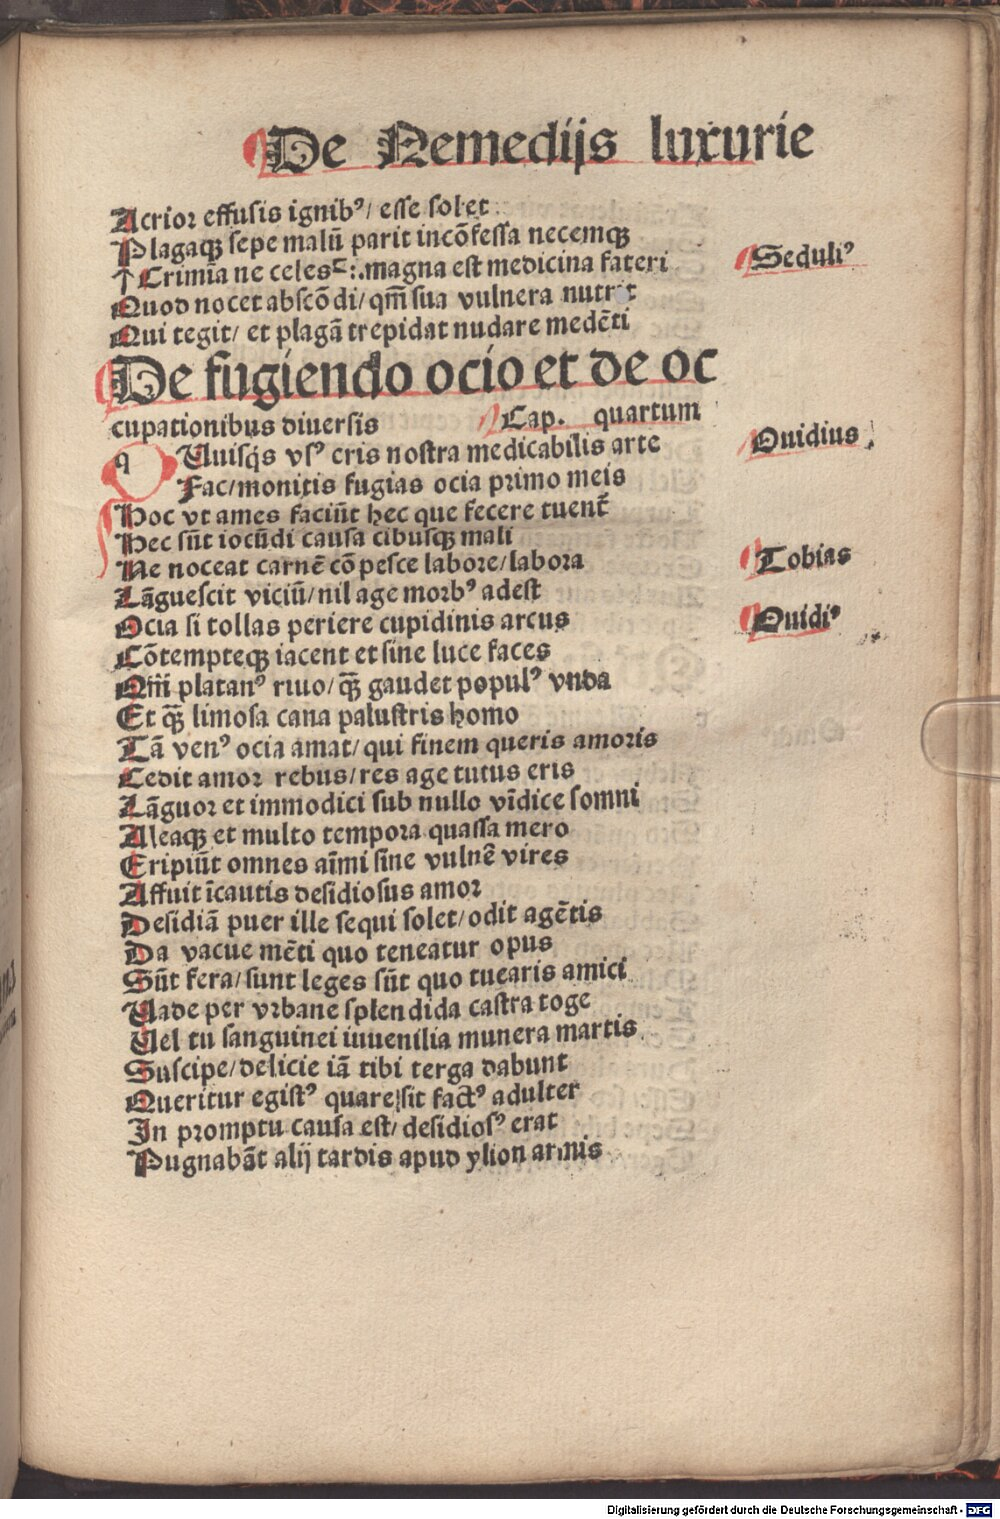 De Remedijs luxurie
Acrior effusis ignibꝰ/ esse solet
Plagaqꝫ sepe malū parit incōfessa necemqꝫ
Crimīa ne celes magna est medicina fateri
Seduliꝰ
Quod nocet abscōdi/ qm̄ sua vulnera nutrit
Qui tegit/ et plagā trepidat nudare medēti
De fugiendo ocio et de oc
cupationibus diuersis Cap. quartum
q Uuisq̇s vsꝰ eris nostra medicabilis arte
Ouidius
Fac/monitis fugias ocia primo meis
Hoc vt ames faciūt hec que fecere tuent̄
Hec sūt iocūdi causa cibusqꝫ mali
Ne noceat carnē cō pesce labore/labora
Tobias
Lāguescit viciū/nil age morbꝰ adest
Ocia si tollas periere cupidinis arcus
Ouidiꝰ
Cōtempteqꝫ iacent et sine luce faces
Qm̄ platanꝰ riuo/ qꝫ̄ gaudet populꝰ vnda
Et qꝫ̄ limosa cana palustris homo
Tā venꝰ ocia amat/ qui finem queris amoris
Cedit amor rebus/res age tutus eris
Lāguor et immodici sub nullo vīdice somni
Aleaqꝫ et multo tempora quassa mero
Eripiūt omnes aīmi sine vulnē vires
Affuit īcautis desidiosus amor
Desidiā puer ille sequi solet/odit agētis
Da vacue mēti quo teneatur opus
Sūt fera/sunt leges sūt quo tuearis amici
Uade per vrbane splendida castra toge
Uel tu sanguinei iuuenilia munera martis
Suscipe/delicie iā tibi terga dabunt
Queritur egistꝰ quare sit factꝰ adulter
In promptu causa est/ desidiosꝰ erat
Pugnabāt alij tardis apud ylion armis
Digitalisierung gefördert durch die Deutsche Forschungsgemeinschaft - DFG